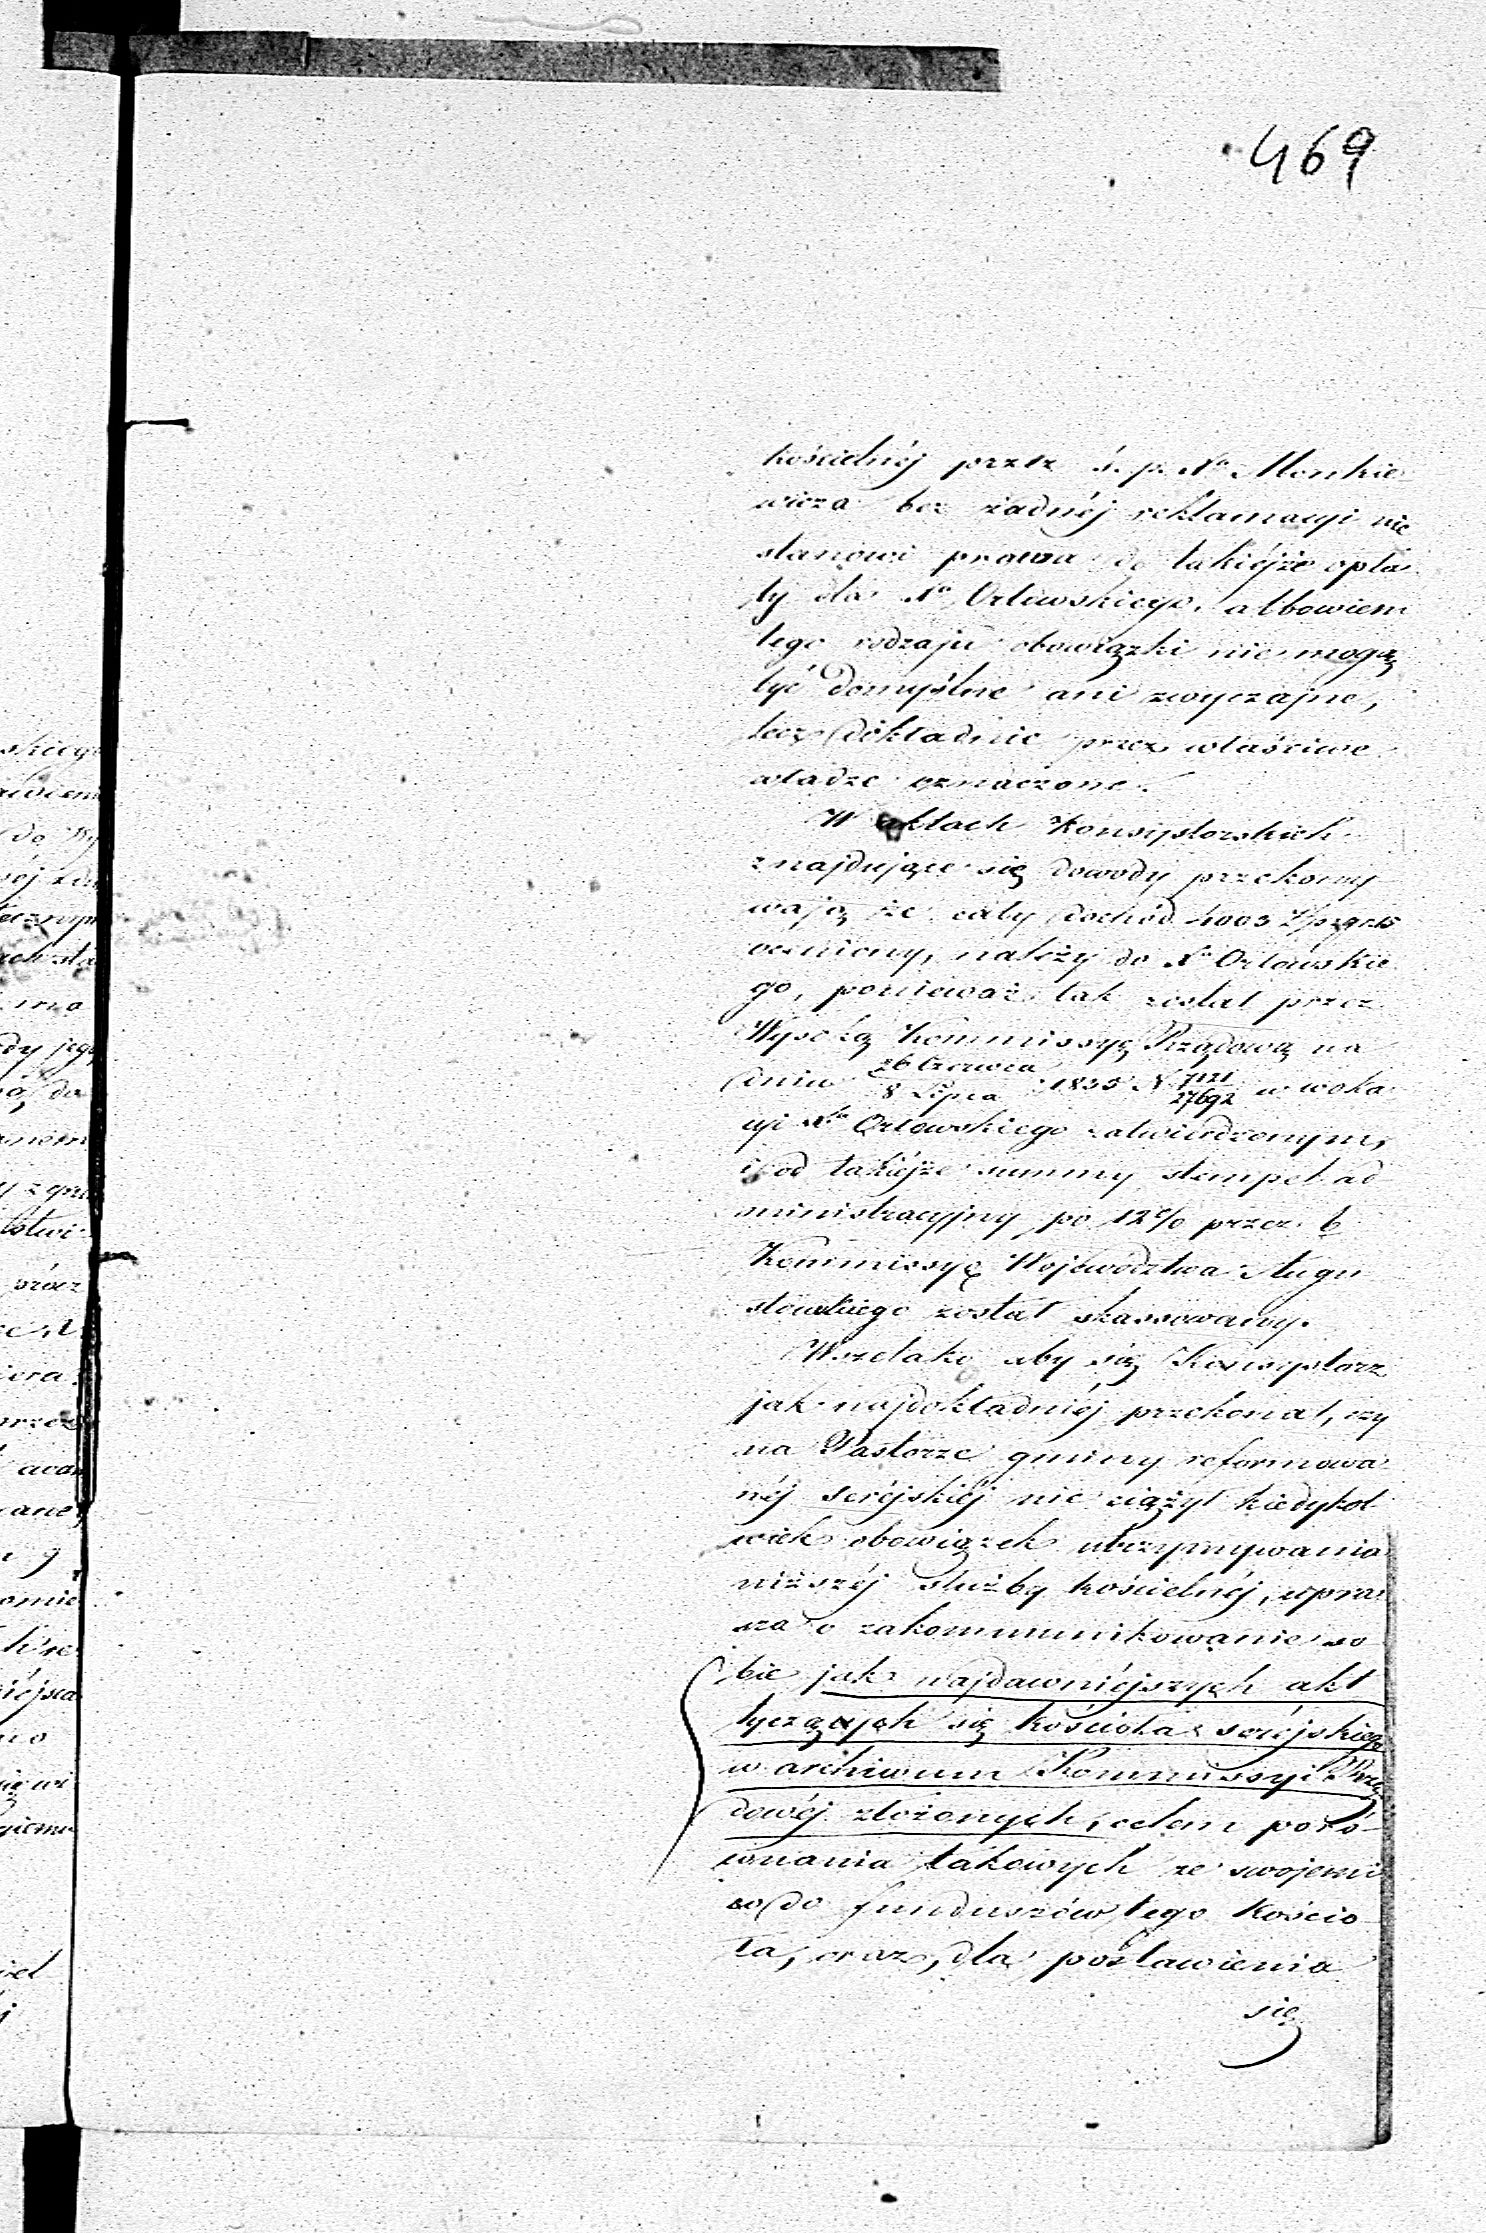 469
kościelnéj przez ś. p. Xa Monkie
wicza bez żadnéj reklamacyi nie
stanowi prawa do takiéjże opła
ty dla Xa Orłowskiego, albowiem
tego rodzaju obowiązki nie mogą
być domyślne ani zwyczajne,
lecz dokładnie przez właściwe
władze oznaczone.
W aktach Konsystorskich
znajdujące się dowody przekony
wają że cały dochód 4003 Zł
oceniony, należy do Xa Orłowskie
go, ponieważ tak został przez
Wysoką Kommissyę Rządową na
dniu 26 Czerwca / 8 Lipca 1835 N 7121 / 27692 w woka
cyi Xa Orłowskiego zatwierdzonym,
i od takiéjże summy stempel ad
ministracyjny po 12% przez b
Kommissyę Województwa Augu
stowskiego został skassowany.
Wszelako aby się Konsystorz
jak najdokładniéj przekonał, czy
na Pastorze gminy reformowa
néj seréjskiéj nie ciążył kiedykol
wiek obowiązek utrzymywania
niższéj służby kościelnéj, upra
sza o zakommunikowanie so
bie jak najdawniéjszych akt
tyczących się kościoła seréjskiego
w archiwum Kommissyi Rzą
dowéj złożonych, celem poró
wnania takowych ze swojemi
co do funduszów tego kościo
ła, oraz, dla postawienia
się